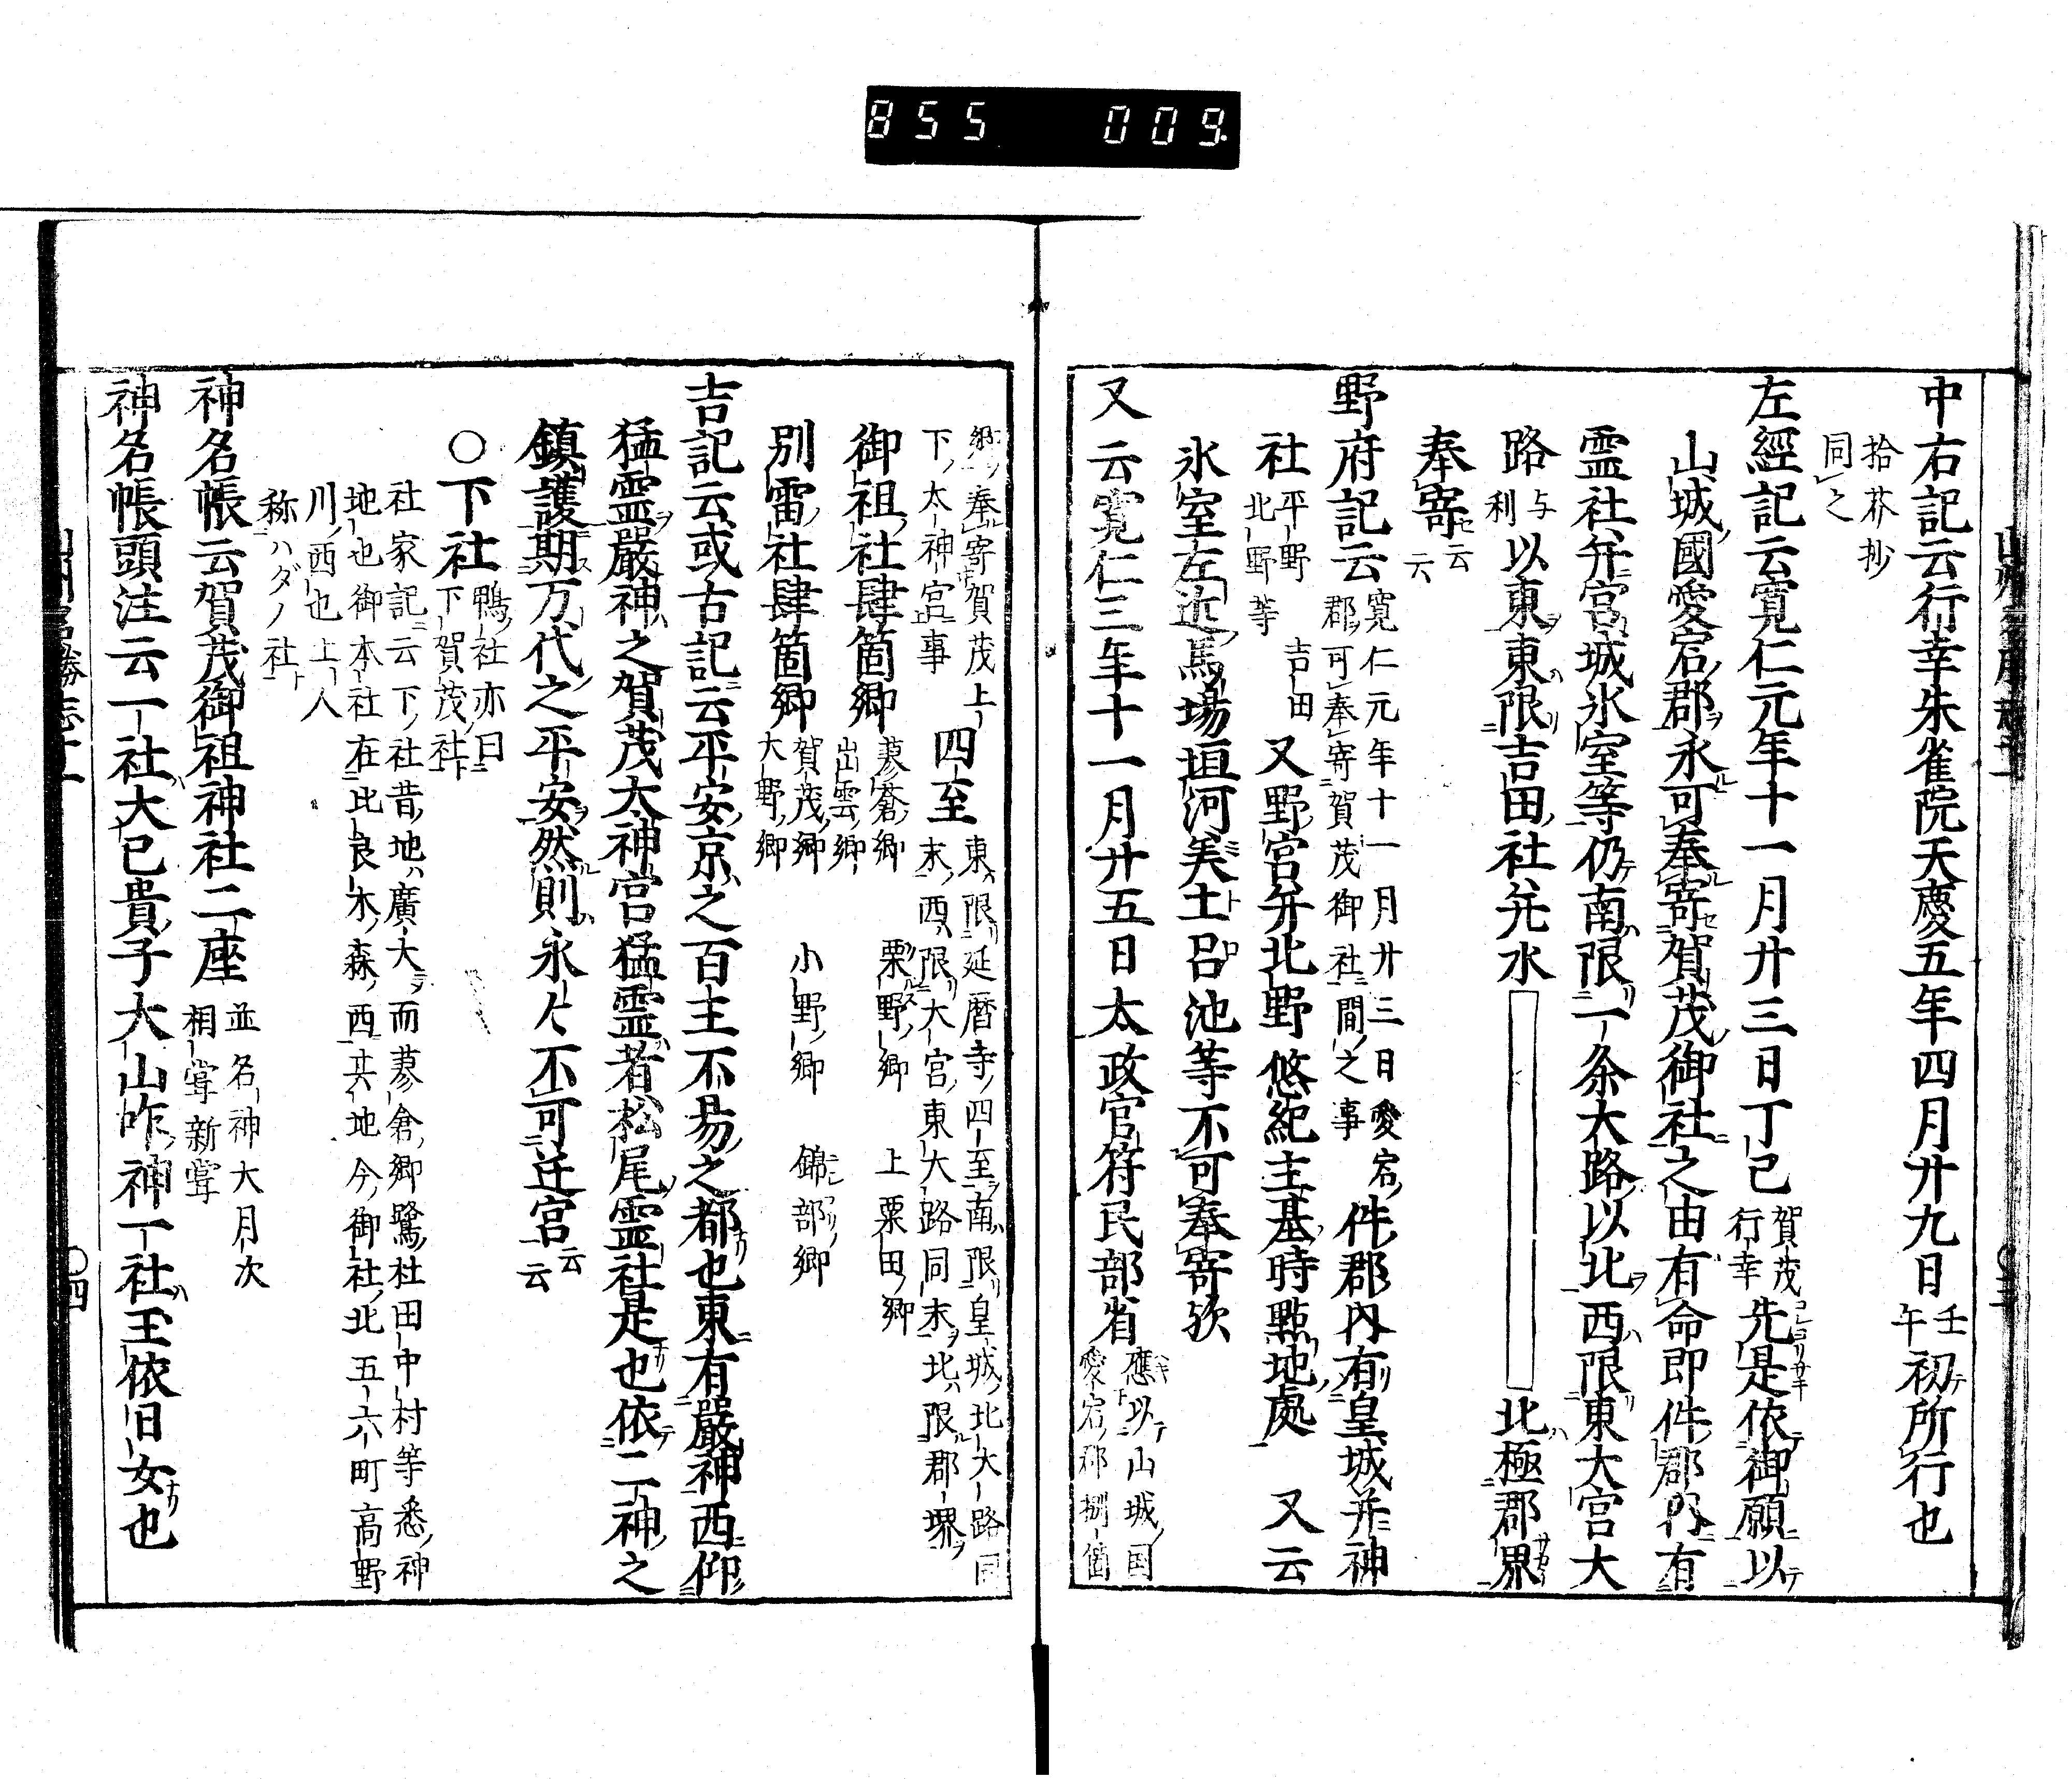 855 009.
中右記云行幸朱雀院天慶五年四月廿九日壬午初テ所行也
拾芥抄
同レ之
左經記云寛仁元年十一月廿三日丁巳賀茂行幸先是依御願以
山城國愛宕郡永可奉寄賀茂御社之由有命即件郡内有
霊社并宮城氷室等仍南限一条大路以北西限東大宮大
路与利以東東限吉田社并水 北極郡界
奉寄云云
野府記云寛仁元年十一月廿三日愛宕郡可奉寄賀茂御社間之事件郡内有皇城并神
社平野北野等吉田又野宮并北野悠紀主基時點地處 又云
氷室左近馬場垣河美土呂池等不可奉寄欤
又云寛仁三年十一月廿五日太政官符民部省應以山城国愛宕郡捌箇
郷奉寄賀茂上下太神宮事四至東限延暦寺四至南限皇城北大路同末西限大宮東大路同末北限郡堺
御祖社肆箇郷蓼蒼郷出雲郷 栗野郷 上粟田郷
別雷社肆箇郷賀茂郷大野郷 小野郷 錦部郷
吉記云或古記云平安京之百主不易之都也東有嚴神西仰
猛霊嚴神之賀茂大神宮猛霊者松尾霊社是也依二神之
鎮護期万代之平安然則永々不可迁宮云云
○下社鴨社亦曰下賀茂社
社家記云下社昔地廣大而蓼倉郷鷺社田中村等悉神
地也御本社在比良木森西其地今御社北五六町高野
川西也上人
称ハダノ社
神名帳云賀茂御祖神社二座並名神大月次相甞新甞
神名帳頭注云一社大己貴子大山咋神一社玉依日女也
○四